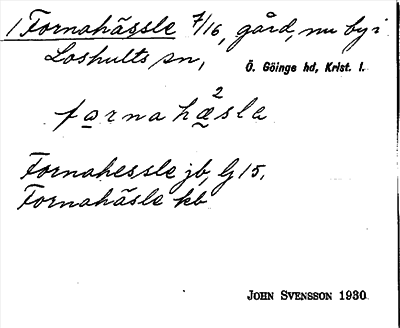 1 Fornahässle 7/16, gård, nu by i
Loshults sn,
Ö. Göinge hd, Krist. l.
fa̱rnahæ²sla
Fornahessle jb, G 15.
Fornahäsle kb
JOHN SVENSSON 1930